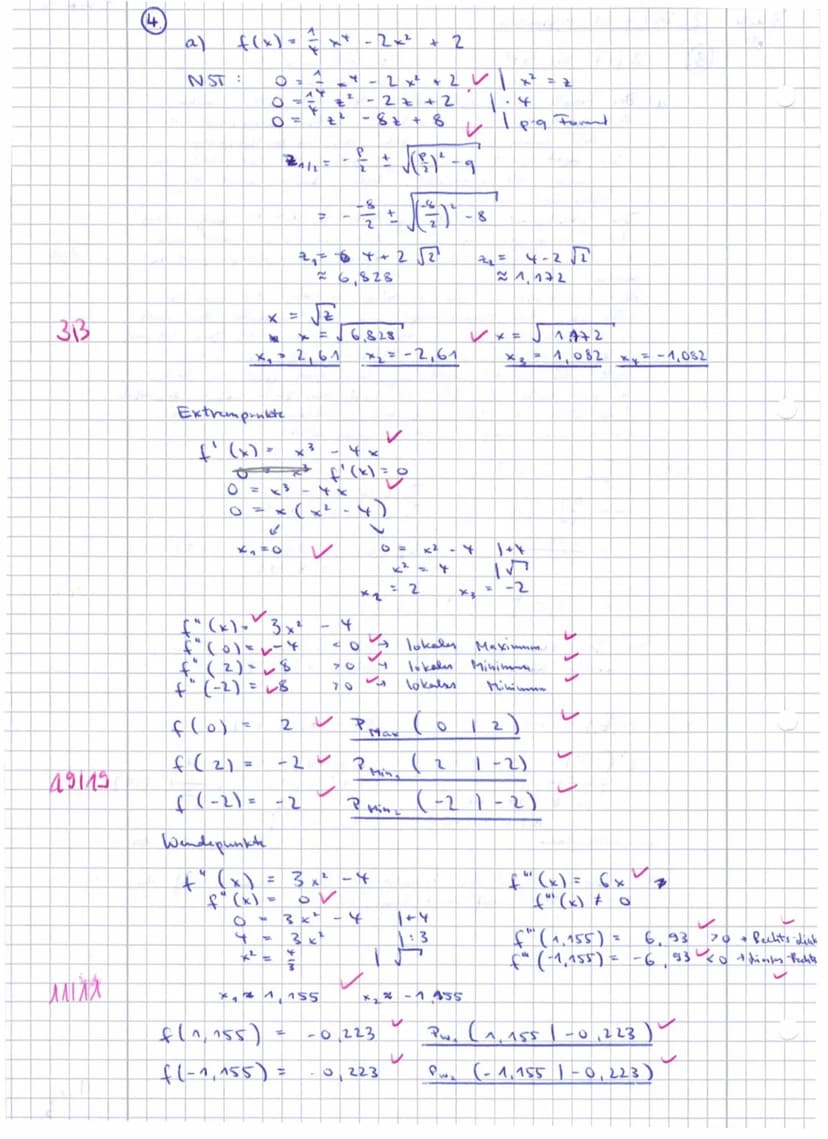 ④
a) f(x) = 1/4 x⁴ - 2x² + 2
NST: 0 = 1/4 x⁴ - 2x² + 2 ✓ | x² = z
0 = 1/4 z² - 2z + 2 | · 4
0 = z² - 8z + 8 ✓ | p-q Formel
z₁/₂ = - p/2 ± √((p/2)² - q)
= - -8/2 ± √((-8/2)² - 8)
z₁ = 4 + 2√2 z₂ = 4 - 2√2
≈ 6,828 ≈ 1,172
x = √z
3/3 x = √6,828 ✓ x = √1,172
x₁ = 2,61 x₂ = -2,61 x₃ = 1,082 x₄ = -1,082
Extrempunkte
f'(x) = x³ - 4x ✓
0 = x³ f'(x) = 0
0 = x³ - 4x ✓
0 = x(x² - 4)
↙ ↘
x₁ = 0 ✓ 0 = x² - 4 | +4
x² = 4 | √
x₂ = 2 x₃ = -2
f''(x) = ✓ 3x² - 4
f''(0) = ✓ -4 < 0 ✓ → lokales Maximum ✓
f''(2) = ✓ 8 > 0 ✓ → lokales Minimum ✓
f''(-2) = ✓ 8 > 0 ✓ → lokales Minimum ✓
f(0) = 2 ✓ P Max (0 | 2) ✓
f(2) = -2 ✓ P Min₁ (2 | -2) ✓
19/19
f(-2) = -2 ✓ P Min₂ (-2 | -2) ✓
Wendepunkte
f''(x) = 3x² - 4 f'''(x) = 6x ✓
f''(x) = 0 ✓ f'''(x) ≠ 0
0 = 3x² - 4 | +4
4 = 3x² | :3 f'''(1,155) = 6,93 ✓ > 0 → Rechts-✓
x² = 4/3 | √ f'''(-1,155) = -6,93 ✓ < 0 → ✓
11/11 x₁ ≈ 1,155 ✓ x₂ ≈ -1,155
f(1,155) = -0,223 ✓ Pw₁ (1,155 | -0,223) ✓
f(-1,155) = -0,223 ✓ Pw₂ (-1,155 | -0,223) ✓